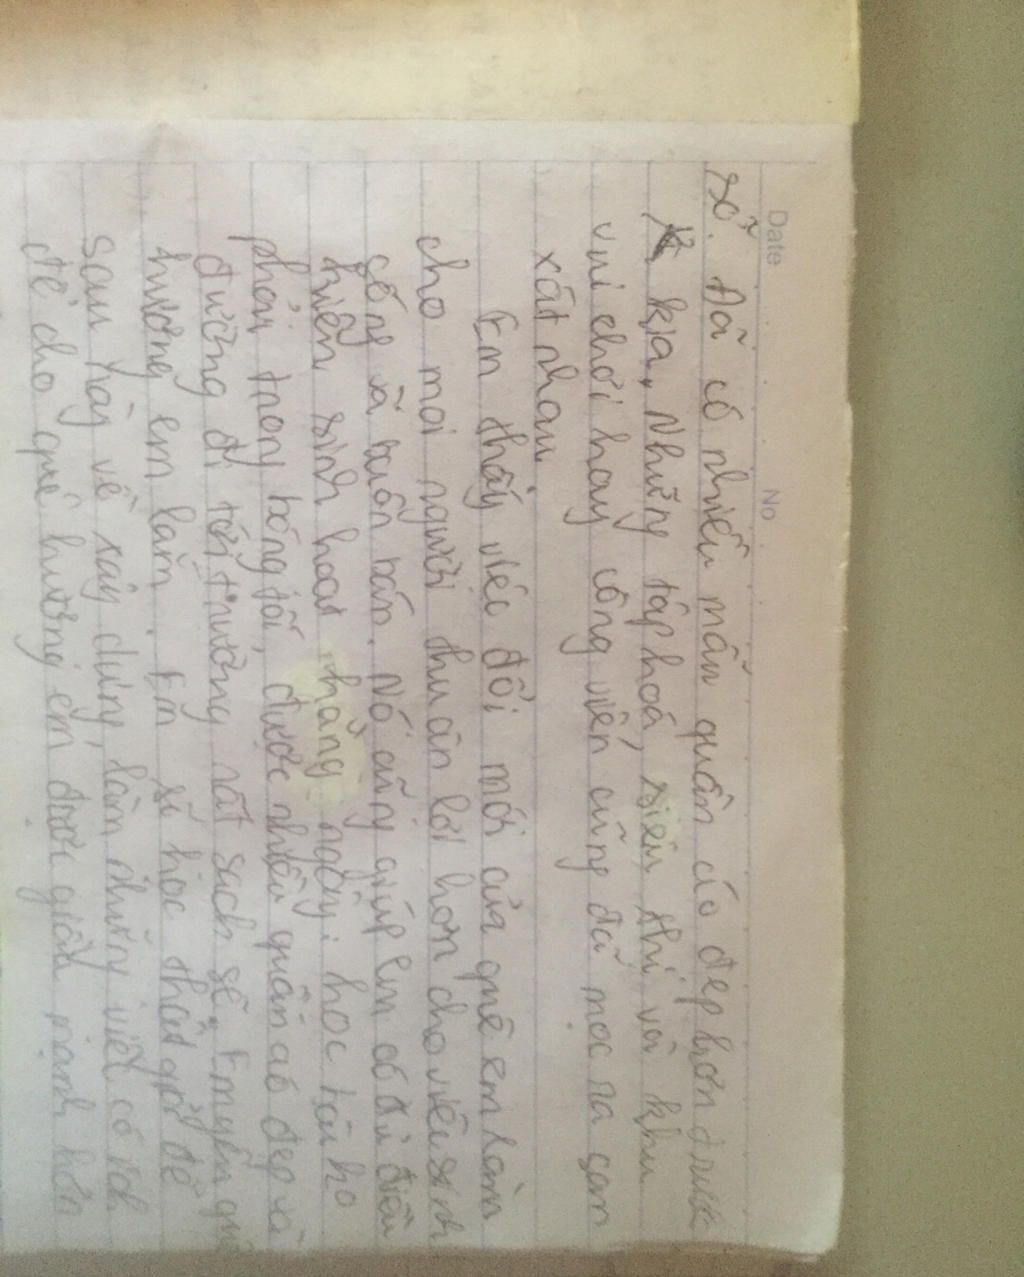 Date No
sở. Đã có nhiều mẫu quần áo đẹp hơn trước
kia. Những tập hoá, siêu thị và khu
vui chơi hay công viên cũng đã mọc ra san
xát nhau.
Em thấy việc đổi mới của quê em làm
cho mọi người thuận lợi hơn cho việc sinh
sống và buôn bán. Nó cũng giúp em có đủ điều
kiện sinh hoạt hằng ngày: học bài ko
phải trong bóng tối, được nhiều quần áo đẹp và
đường đi tới trường rất sạch sẽ. Em yêu quê
hương em lắm. Em sẽ học thật giỏi để
sau này về xây dựng làm những việc có ích
để cho quê hương em được giàu mạnh hơn